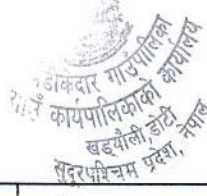 डीकदार गाउँपालिका
गाउँ कार्यपालिकाको कार्यालय
खड्यौली, डोटी
सुदूरपश्चिम प्रदेश, नेपाल